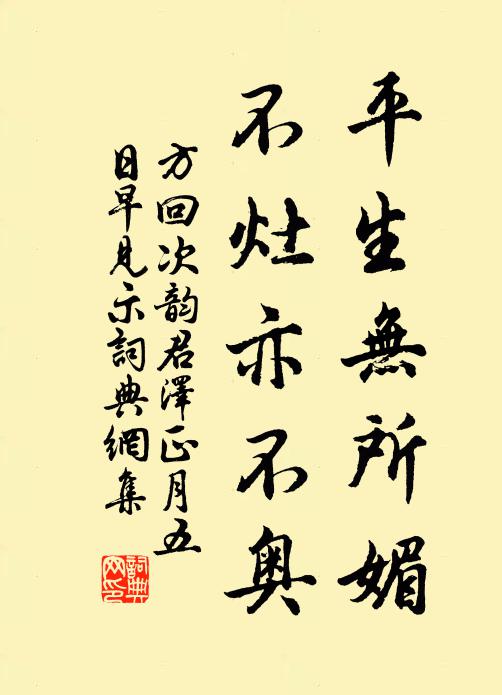 平生無所媚
不灶亦不奥
方回次韵君澤正月五
日早見示詞典網集
詞典
网印